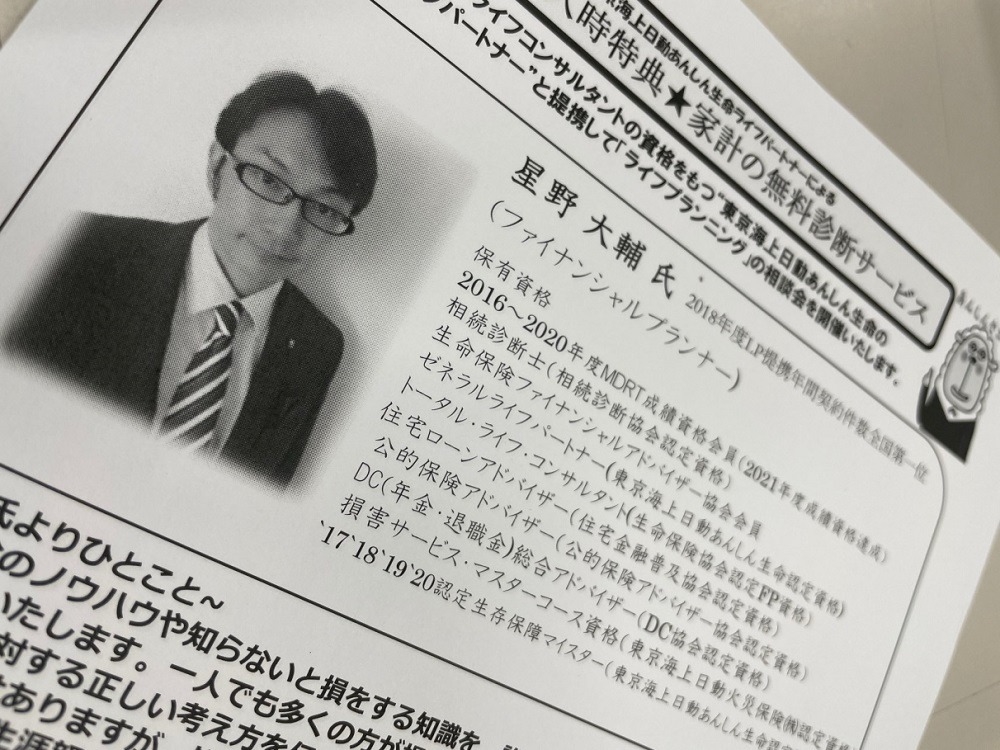 京海上日動あんしん生命ライフパートナーによる
入時特典★家計の無料診断サービス
ライフコンサルタントの資格をもつ“東京海上日動あんしん生命の
パートナー”と提携して「ライフプランニング」の相談会を開催いたします。
星野 大輔 氏
2018年度LP提携年間契約件数全国第一位
(ファイナンシャルプランナー)
保有資格
2016〜2020年度MDRT成績資格会員(2021年度成績資格達成)
相続診断士(相続診断協会認定資格)
生命保険ファイナンシャルアドバイザー協会会員
ゼネラルライフパートナー(東京海上日動あんしん生命認定資格)
トータル・ライフ・コンサルタント(生命保険協会認定FP資格)
住宅ローンアドバイザー(住宅金融普及協会認定資格)
公的保険アドバイザー(公的保険アドバイザー協会認定資格)
DC(年金・退職金)総合アドバイザー(DC協会認定資格)
損害サービス・マスターコース資格(東京海上日動火災保険㈱認定資
'17'18'19'20認定生存保障マイスター(東京海上日動あんしん生
氏よりひとこと~
のノウハウや知らないと損をする知識を
いたします。一人でも多くの方が
対する正しい考え方を
ありますが